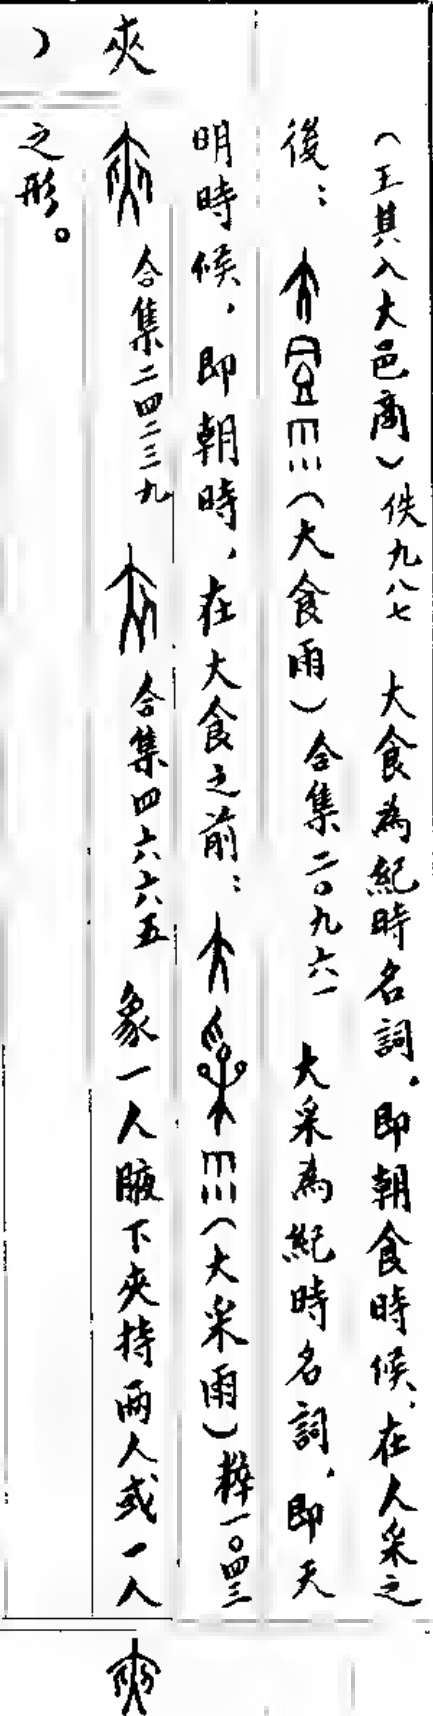 （王其入大邑商）佚九八七　大食為紀時名詞，即朝食時候，在大采之
後：（大食雨）合集二〇九六一　大采為紀時名詞，即天
明時候，即朝時，在大食之前：（大采雨）粹一〇四三
夾　合集二四二三九　合集四六六五　象一人腋下夾持兩人或一人
）之形。